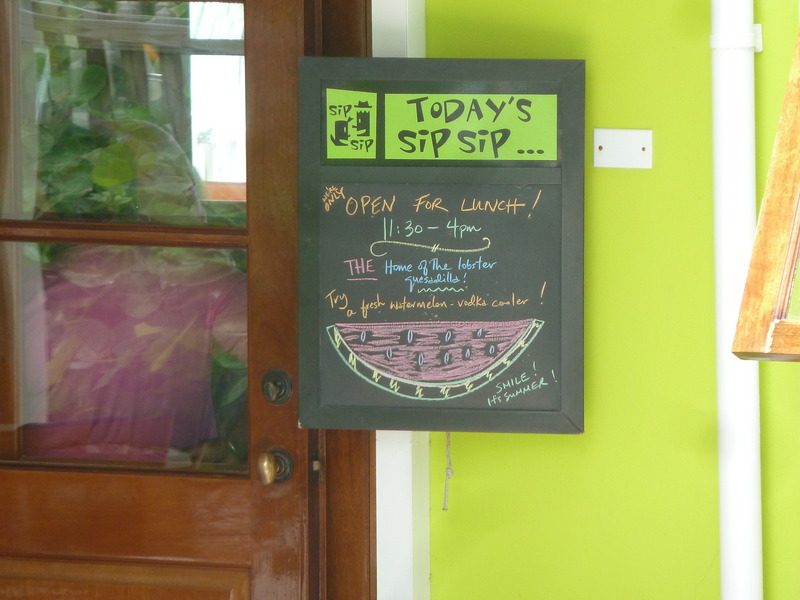 SiP
SiP
TODAY'S
SiP SiP ...
ONLY
OPEN FOR LUNCH!
11:30 - 4pm
THE Home of the lobster
quesadilla!
Try a fresh watermelon - vodka cooler!
SMILE!
It's SUMMER!